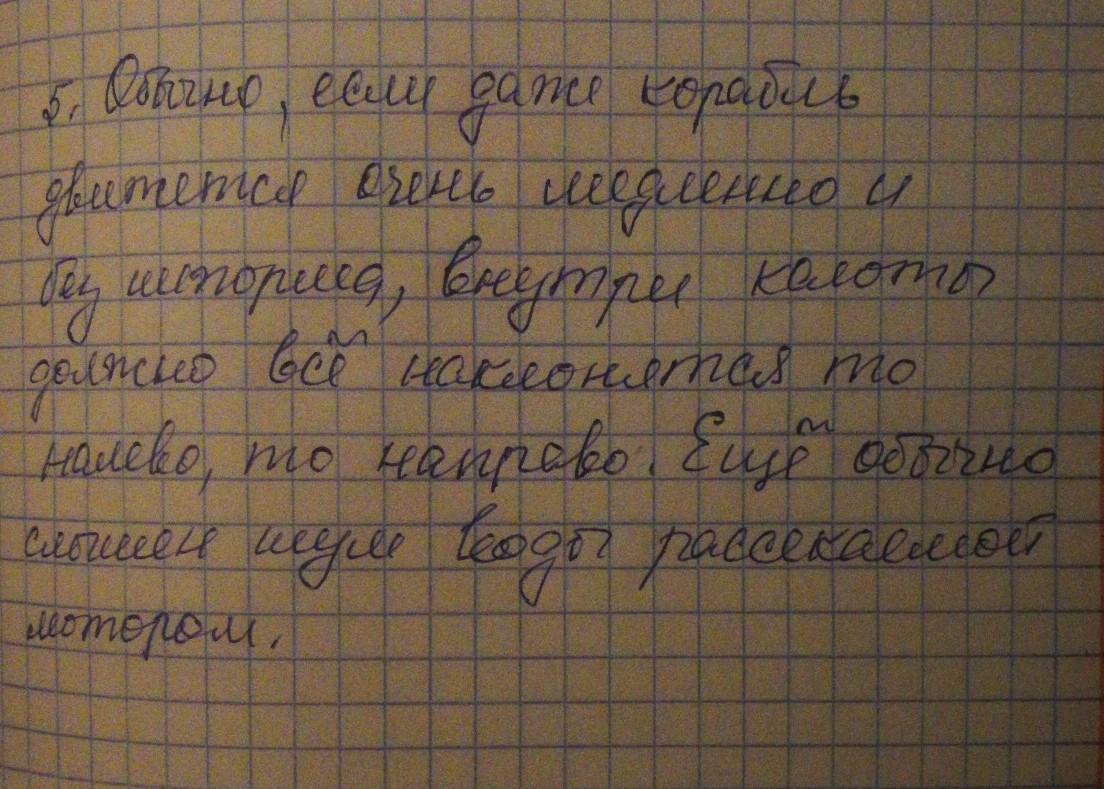 5. Обычно, если даже корабль
движется очень медленно и
без шторма, внутри калоты
должно всё наклонятся то
налево, то направо. Ещё обычно
слышен шум воды рассекаемой
мотором.